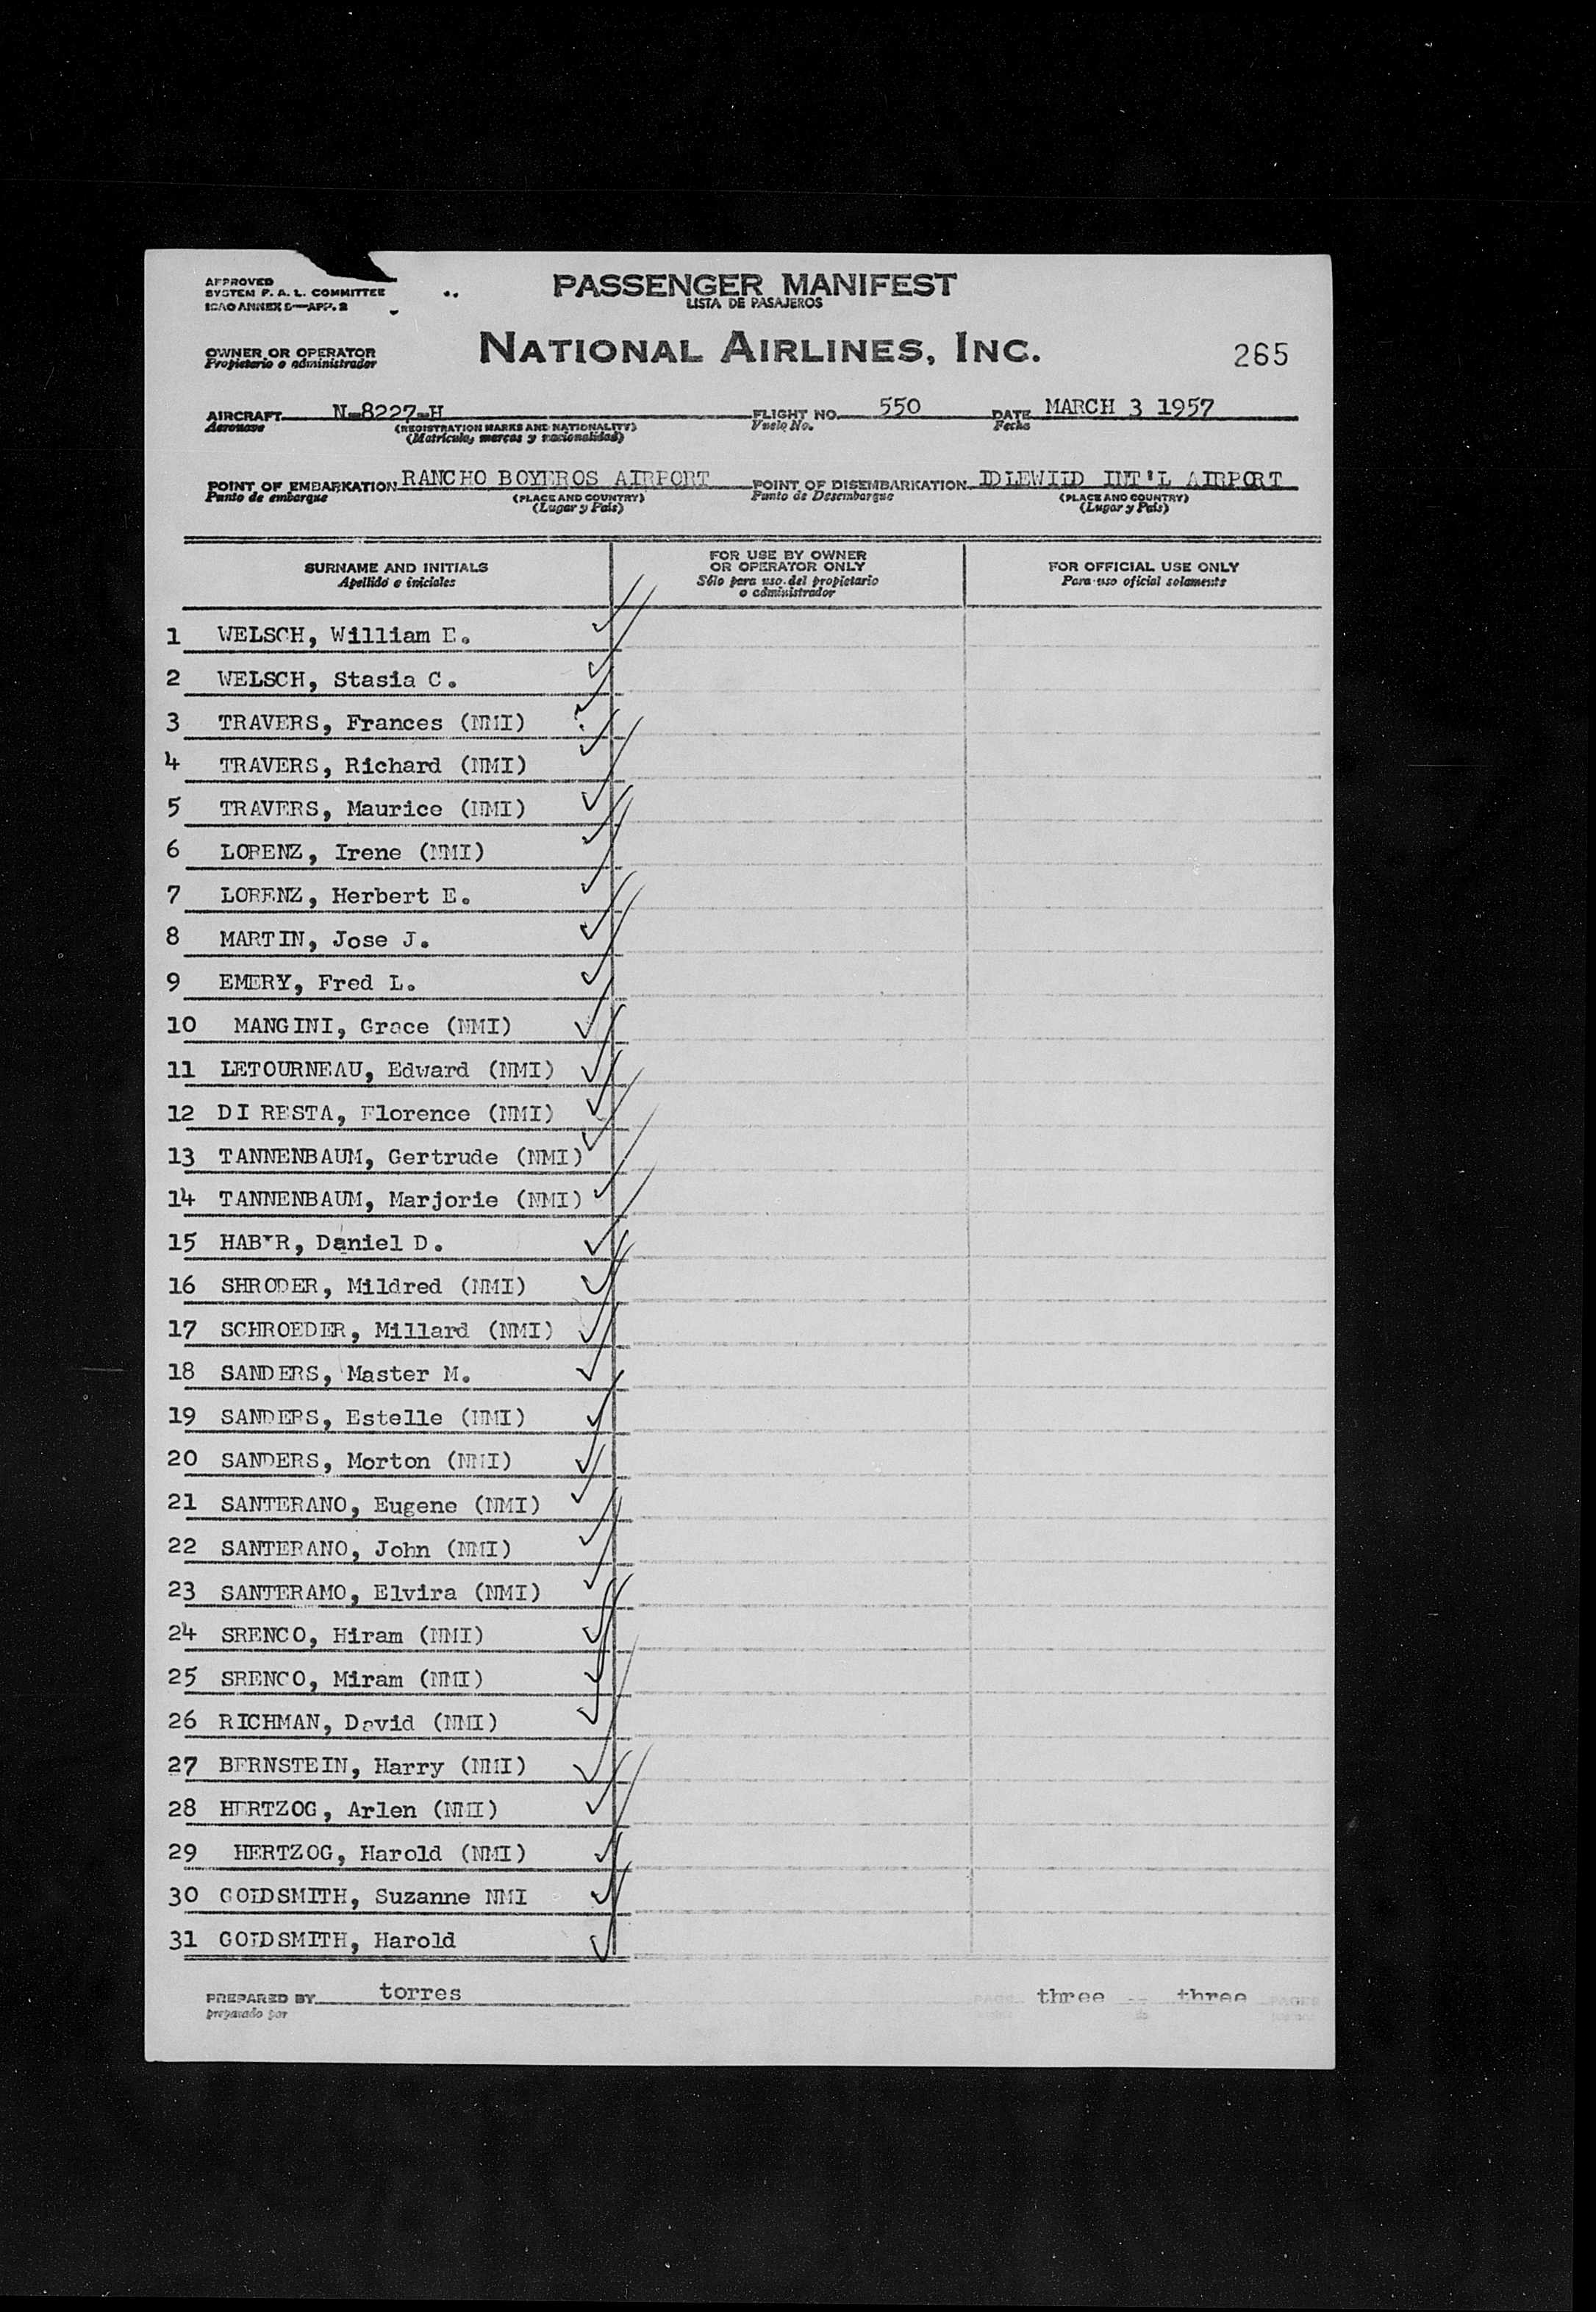 APPROVED
SYSTEM F. A. L. COMMITTEE
ICAO ANNEX 9—APP. 2
PASSENGER MANIFEST
LISTA DE PASAJEROS
OWNER OR OPERATOR
Propietario o administrador
NATIONAL AIRLINES, INC.
265
AIRCRAFT N-8227-H FLIGHT NO. 550 DATE MARCH 3 1957
Aeronave (REGISTRATION MARKS AND NATIONALITY) Vuelo No. Fecha
(Matricula, marcas y nacionalidad)
POINT OF EMBARKATION RANCHO BOYEROS AIRPORT POINT OF DISEMBARKATION IDLEWILD INT'L AIRPORT
Punto de embarque (PLACE AND COUNTRY) Punto de Desembarque (PLACE AND COUNTRY)
(Lugar y País) (Lugar y País)
SURNAME AND INITIALS
Apellido e iniciales
FOR USE BY OWNER
OR OPERATOR ONLY
Sólo para uso del propietario
o administrador
FOR OFFICIAL USE ONLY
Para uso oficial solamente
1 WELSCH, William E.
2 WELSCH, Stasia C.
3 TRAVERS, Frances (NMI)
4 TRAVERS, Richard (NMI)
5 TRAVERS, Maurice (NMI)
6 LORENZ, Irene (NMI)
7 LORENZ, Herbert E.
8 MARTIN, Jose J.
9 EMERY, Fred L.
10 MANGINI, Grace (NMI)
11 LETOURNEAU, Edward (NMI)
12 DI RESTA, Florence (NMI)
13 TANNENBAUM, Gertrude (NMI)
14 TANNENBAUM, Marjorie (NMI)
15 HABER, Daniel D.
16 SHRODER, Mildred (NMI)
17 SCHROEDER, Millard (NMI)
18 SANDERS, Master M.
19 SANDERS, Estelle (NMI)
20 SANDERS, Morton (NMI)
21 SANTERANO, Eugene (NMI)
22 SANTERANO, John (NMI)
23 SANTERAMO, Elvira (NMI)
24 SRENCO, Hiram (NMI)
25 SRENCO, Miram (NMI)
26 RICHMAN, David (NMI)
27 BERNSTEIN, Harry (NMI)
28 HERTZOG, Arlen (NMI)
29 HERTZOG, Harold (NMI)
30 GOLDSMITH, Suzanne NMI
31 GOLDSMITH, Harold
PREPARED BY torres PAGE three three PAGES
preparado por